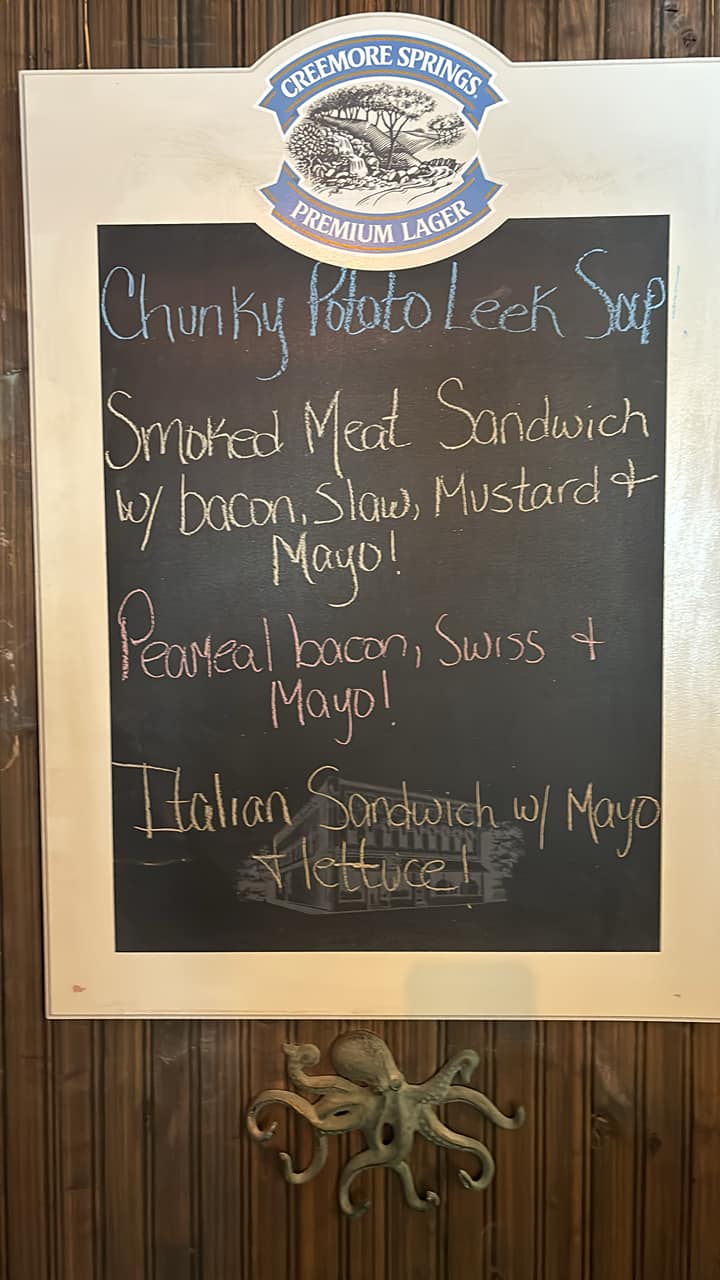 CREEMORE SPRINGS
PREMIUM LAGER
Chunky Potato Leek Soup!
Smoked Meat Sandwich
w/ bacon, slaw, Mustard &
Mayo!
Peameal bacon, Swiss &
Mayo!
Italian Sandwich w/ Mayo
& lettuce!